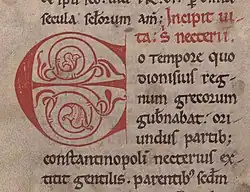 secula sctorum am. Incipit ui
ta. S. necterii.
E o tempore quo
dionisius reg-
num grecorum
gubnabat. ori
undus partib;
constantinopoli necterius ex
titit gentilis. parentib; sedm